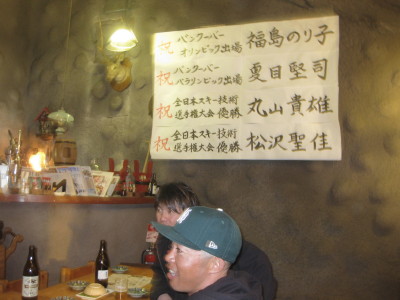 祝 バンクーバー
オリンピック出場 福島のり子
祝 バンクーバー
パラリンピック出場 夏目堅司
祝 全日本スキー技術
選手権大会 優勝 丸山貴雄
祝 全日本スキー技術
選手権大会 優勝 松沢聖佳